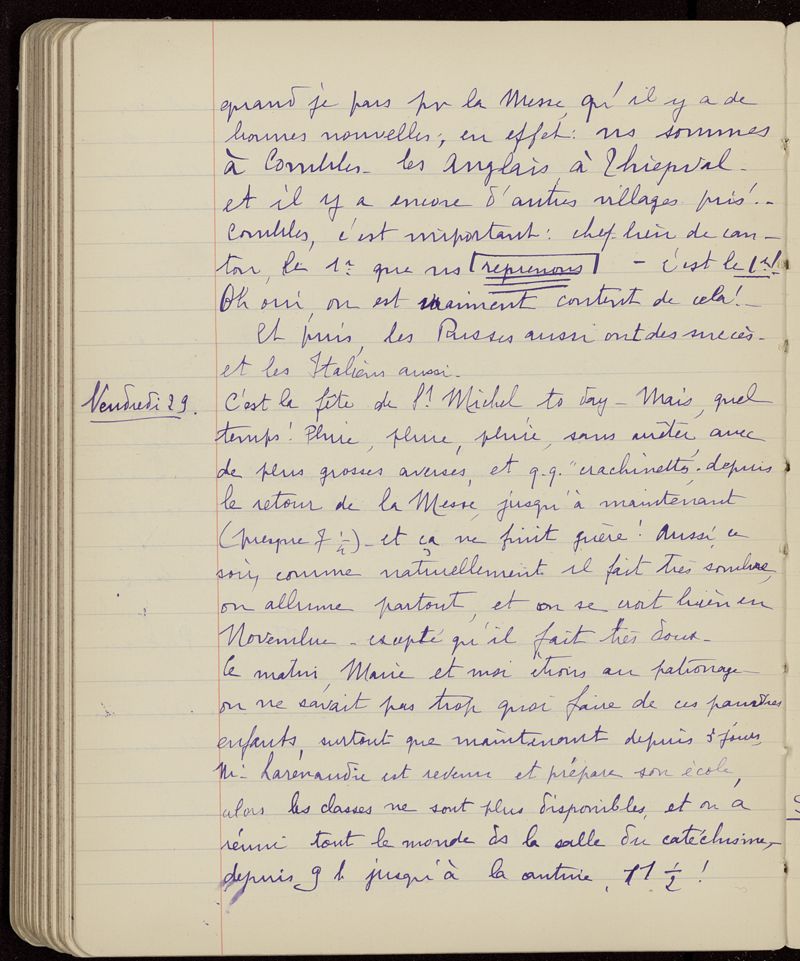 quand je pars pr la Messe, qu'il y a de
bonnes nouvelles; en effet: ns sommes
à Combles - les Anglais, à Thiepval -
et il y a encore d'autres villages pris! -
Combles, c'est important: chef-lieu de can-
ton, le 1er que ns reprenons - c'est le 1er!
Oh oui, on est vraiment content de cela! -
Et puis, les Russes aussi ont des succès -
et les Italiens aussi.
Vendredi 29. C'est la fête de St Michel to day - Mais, quel
temps! Pluie, pluie, pluie, sans arrêter avec
de plus grosses averses, et q.q. "crachinetts" depuis
le retour de la Messe, jusqu'à maintenant
(presque 7 1/4) - et ça ne finit guère! Aussi, ce
soir, comme naturellement il fait très sombre,
on allume partout, et on se croit bien en
Novembre - excepté qu'il fait très doux -
Ce matin, Marie et moi étions au patronage -
on ne savait pas trop quoi faire de ces pauvres
enfants, surtout que maintenant depuis 3 jours,
Mr Larenaudie est revenu et prépare son école,
alors les classes ne sont plus disponibles, et on a
réuni tout le monde ds la salle du catéchisme, -
depuis 9 h jusqu'à la sortie, 11 1/2!